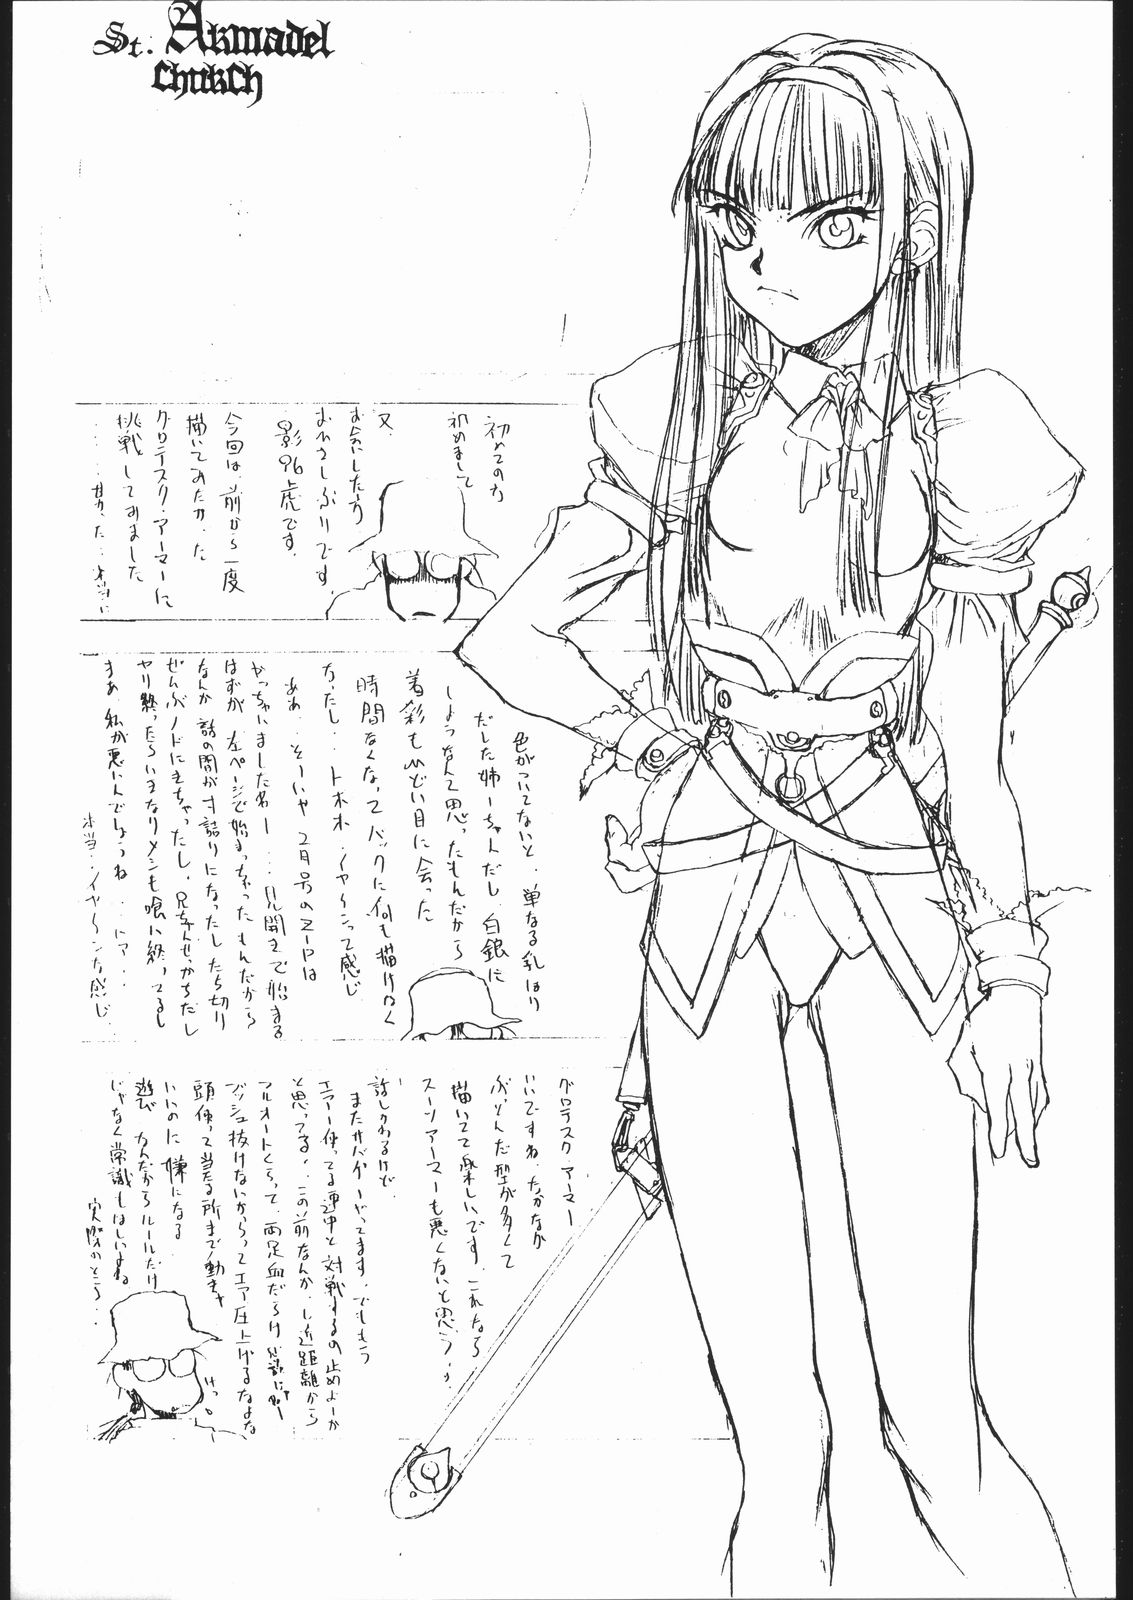 St. Armadel
Church
初めての方
初めまして
又、
お会いした方
おひさしぶりです。
影96虎です。
今回は、前から一度
描いてみたかった
グロテスク・アーマーに
挑戦してみました
色がついてないと、単なる乳はり
だした姉ーちゃんだし、白銀に
しようなんて思ったもんだから
着彩もひどい目に会った
時間なくなってバックに何も描けなく
なったし...トホホ・イヤ〜ンって感じ
ああ、そーいや2月号の
やっちゃいましたねー...見開きで始まる
はずが、左ページで始まっちゃったもんだから
なんか話の間が寸詰りになったし、たち切り
ぜんぶノドにきちゃったし、
ヤリ終ったらいきなりメシも喰い終ってるし
まあ、私が悪いんでしょうね...
本当・イヤ〜ンな感じ..
グロテスク・アーマー
いいですね、なかなか
ぶっとんだ型が多くて
描いてて楽しいです、これなら
スーツアーマーも悪くないと思う、
話しかわるけど、
またサバゲーやってます、でももう
エアー使ってる連中と対戦するの止めよーか
と思ってる、この前なんか、し近距離から
フルオートくらって、両足血だらけ
ブッシュ抜けないからってエア圧上げるなよな
頭使って当たる所まで動きゃ
いいのに嫌になる
遊びなんだからルールだけ
じゃなく常識もほしいよね
実際のところ...
けっ。